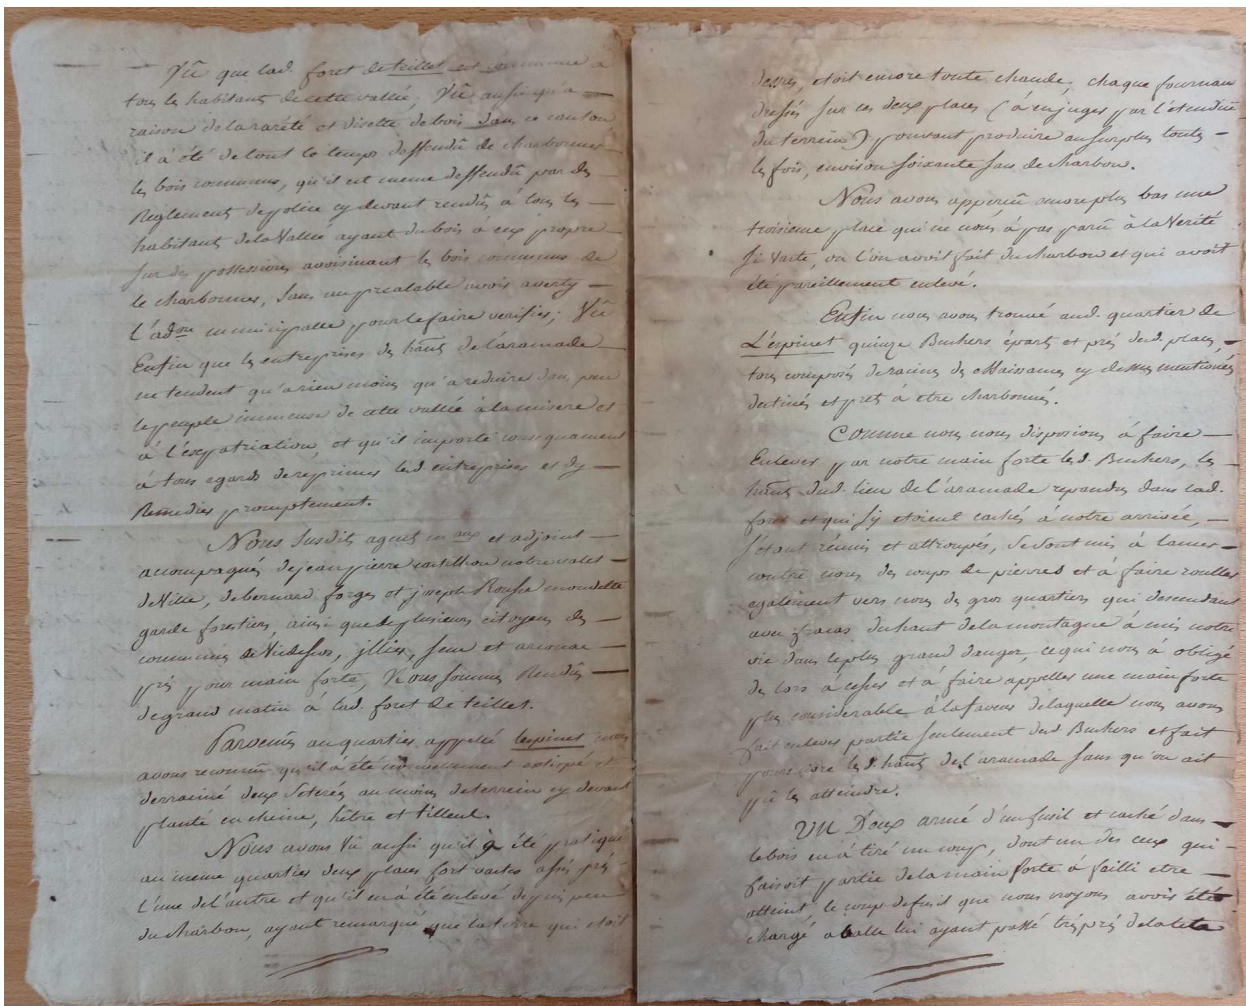 Vû que lad. foret de teillet est commune a
tous les habitants de cette vallée. Vû aussi qu'a
raison de la rarété et disette de bois dans ce canton
il à été de tout le temps deffendû de charbonner
les bois communs, qu'il est meme deffendû par des
Reglements de police cy devant rendûs à tous les
habitants de la Vallée ayant du bois à eux propre
sur des possessions avoisinant les bois communs de
le charbonner, sans au prealable avoir averty
l'adon municipalle pour le faire verifier; Vû
Enfin que les entreprises des hants de l'aramade
ne tendent qu'a rien moins qu'a reduire dans peu
le peuple immense de cette vallée à la misere et
à l'expatriation, et qu'il importe consequament
à tous egards de reprimer lesd. entreprises et d'y
Remedier promptement.
Nous susdits agents maux et adjoint
accompagnés de jean pierre castilhou notre valet
de Ville, de bernard forges et joseph Rousse moudelle
garde forestiers, ainsi que de plusieurs citoyens des
communes de Vicdessos, illier, sem et arconac
pris pour main forte, Nous sommes Rendûs
de grand matin à lad. foret de teillet.
Parvenûs au quartier appellé lespinet nous
avons reconnû qu'il à été nouvellement extirpé et
derraciné deux seterés au moins de terrein cy devant
planté en cheine, hêtre et tilleul.
Nous avons Vû aussi qu'il à été pratiqué
au meme quartier deux places fort vastes assés près
l'une de l'autre et qu'il en à été enlevé depuis peu
du charbon, ayant remarqué que la terre qui etoit
dessus, etoit encore toute chaude, chaque fourneau
dressés sur ces deux places (à en juger par l'étendüe
du terrein) pouvant produire au surplus toutes
les fois, environ soixante sacs de charbon.
Nous avons apperçû encore plus bas une
troisieme place qui ne nous à pas parû à la Verité
si vaste, où l'on avoit fait du charbon et qui avoit
été pareillement enlevé.
Enfin nous avons trouvé aud. quartier de
L'espinet quinze Buchers éparts et près desd. places,
tous composés de racines des Maissames cy dessus mentionés
destinés et prets à etre charbonnés.
Comme nous nous disposions à faire
Enlever par notre main forte lesd. Buchers, les
hants dud. lieu de l'aramade repandus dans lad.
foret et qui s'y etoient cachés à notre arrivée,
s'étant réunis et attroupés, se sont mis à lancer
contre nous des coups de pierres et à faire rouller
egalement vers nous de gros quartiers qui descendant
avec fracas du haut de la montagne à mis notre
vie dans le plus grand danger, ce qui nous à obligé
des lors à cesser et à faire appeller une main forte
plus considerable à la faveur de laquelle nous avons
fait enlever partie seulement desd Buchers et fait
poursuivre lesd. hants de l'aramade sans qu'on ait
pû les atteindre.
UN D'eux armé d'un fusil et caché dans
le bois en à tiré un coup, dont un des ceux qui
faisoit partie de la main forte à failli etre
atteint, le coup de fusil que nous croyons avoir été
chargé à balle lui ayant passé très près de la tete